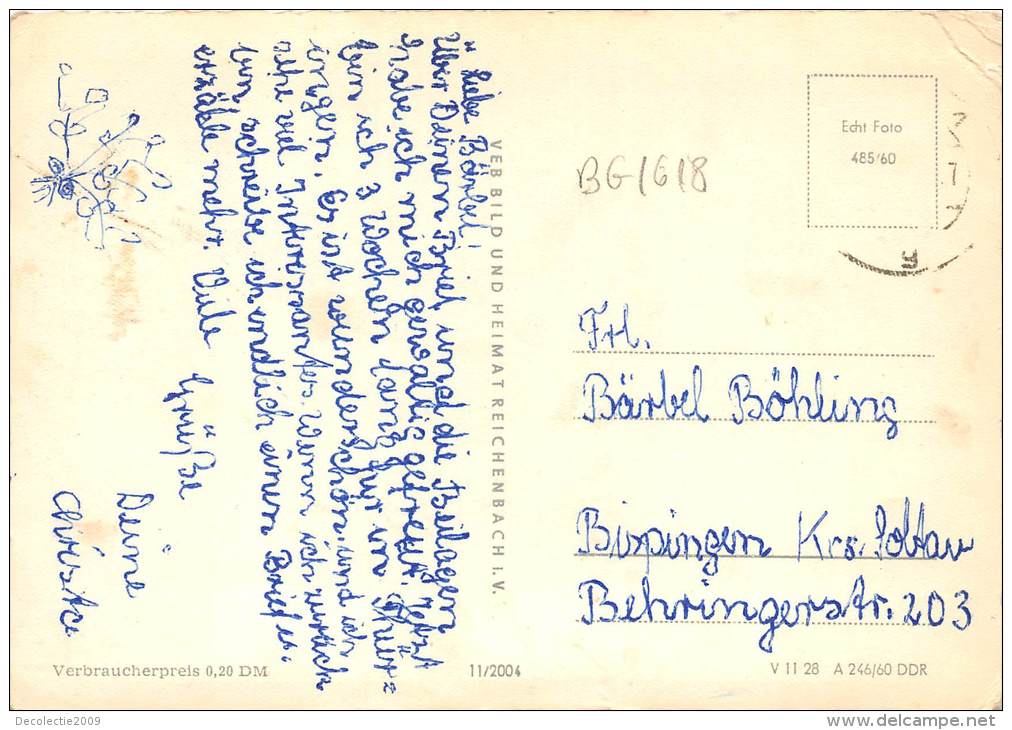 Liebe Bärbel!
Über Deinen Brief und die Beilagen
habe ich mich gewaltig gefreut. Jetzt
bin ich 3 Wochen lang hier im Thür=
ingen. Es ist wunderschön und ich
sehe viel Interessantes. Wenn ich zurück
bin, schreibe ich endlich einen Brief u.
erzähle mehr. Viele
Grüße
Deine
Christa
VEB BILD UND HEIMAT REICHENBACH I.V.
Echt Foto
485/60
BG/618
Frl.
Bärbel Böhling
Bispingen Krs. Soltau
Behringerstr. 203
Verbraucherpreis 0,20 DM
11/2004
V 11 28 A 246/60 DDR
Decolectie2009
www.delcampe.net